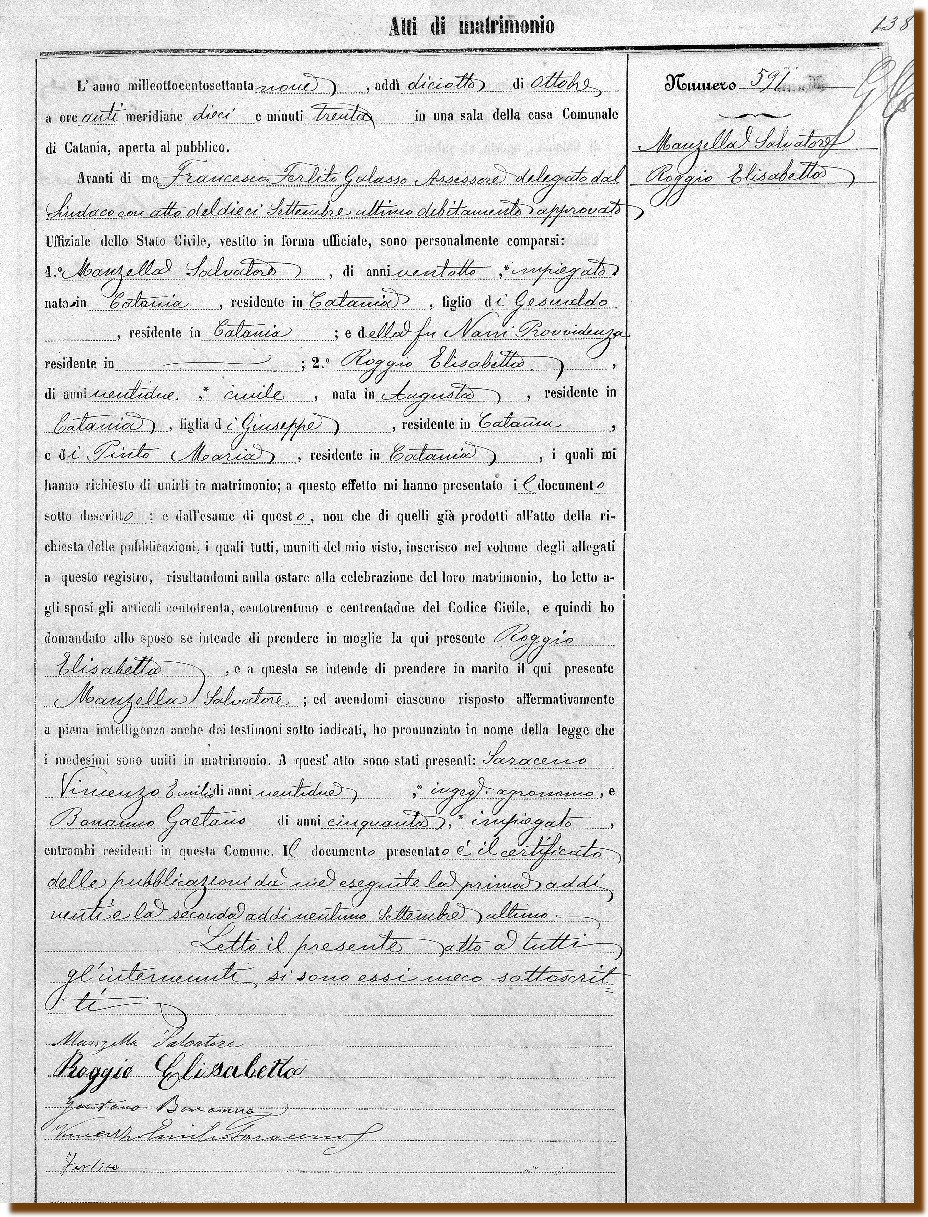 Atti di matrimonio
138
L'anno milleottocentosettanta nove, addì diciotto di Ottobre
a ore anti meridiane dieci e minuti trenta in una sala della casa Comunale
di Catania, aperta al pubblico.
Avanti di me Francesco Ferlito Galasso Assessore delegato dal
Sindaco con atto del dieci Settembre ultimo debitamente approvato
Uffiziale dello Stato Civile, vestito in forma ufficiale, sono personalmente comparsi:
1.° Manzella Salvatore, di anni ventotto, impiegato
nato in Catania, residente in Catania, figlio di Gesualdo
, residente in Catania; e della fu Nani Provvidenza
residente in ; 2.° Roggio Elisabetta,
di anni ventidue, civile, nata in Augusta, residente in
Catania, figlia di Giuseppe, residente in Catania,
e di Pinto Maria, residente in Catania, i quali mi
hanno richiesto di unirli in matrimonio; a questo effetto mi hanno presentato il documento
sotto descritto: e dall'esame di questo, non che di quelli già prodotti all'atto della ri-
chiesta delle pubblicazioni, i quali tutti, muniti del mio visto, inserisco nel volume degli allegati
a questo registro, risultandomi nulla ostare alla celebrazione del loro matrimonio, ho letto a-
gli sposi gli articoli centotrenta, centotrentuno e centrentadue del Codice Civile, e quindi ho
domandato allo sposo se intende di prendere in moglie la qui presente Roggio
Elisabetta, e a questa se intende di prendere in marito il qui presente
Manzella Salvatore; ed avendomi ciascuno risposto affermativamente
a piena intelligenza anche dei testimoni sotto indicati, ho pronunziato in nome della legge che
i medesimi sono uniti in matrimonio. A quest'atto sono stati presenti: Saraceno
Vincenzo Emilio di anni ventidue, ingeg: agronomo, e
Bonanno Gaetano di anni cinquanta, impiegato,
entrambi residenti in questa Comune. Il documento presentato è il certificato
delle pubblicazioni da me eseguite la prima addì
venti e la seconda addì ventuno Settembre ultimo.
Letto il presente atto a tutti
gl'intervenuti si sono essi meco sottoscrit=
ti
Manzella Salvatore
Roggio Elisabetta
Gaetano Bonanno
Vincenzo Emilio Saraceno
Ferlito
Numero 591
Manzella Salvatore
Roggio Elisabetta